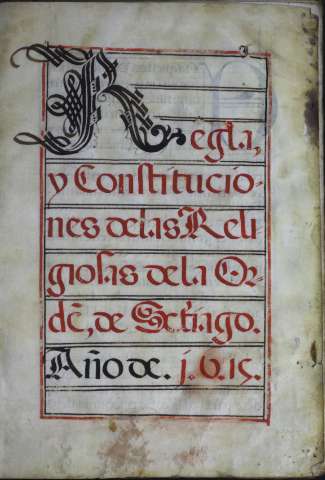 Regla,
y Constitucio-
nes de las Reli
giosas de la Or-
dē, de Sctiago.
Año de. j.6.15.